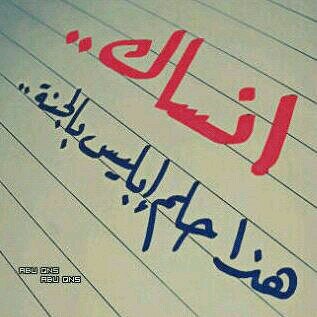 انساك..
هذا حلم إبليس بالجنة..
ABU QNS
ABU QNS